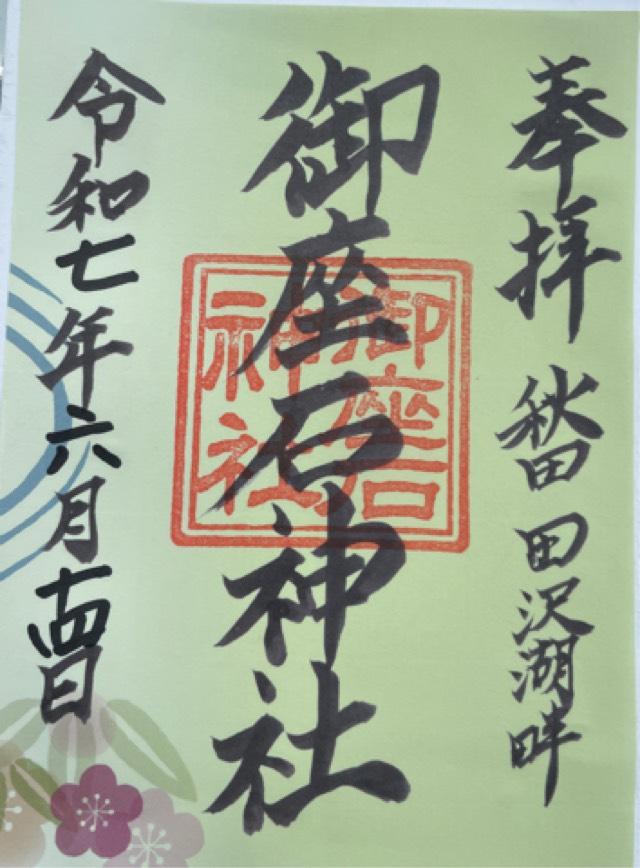 奉拝 秋田 田沢湖畔
御座石神社
御座石
神社
令和七年六月十四日